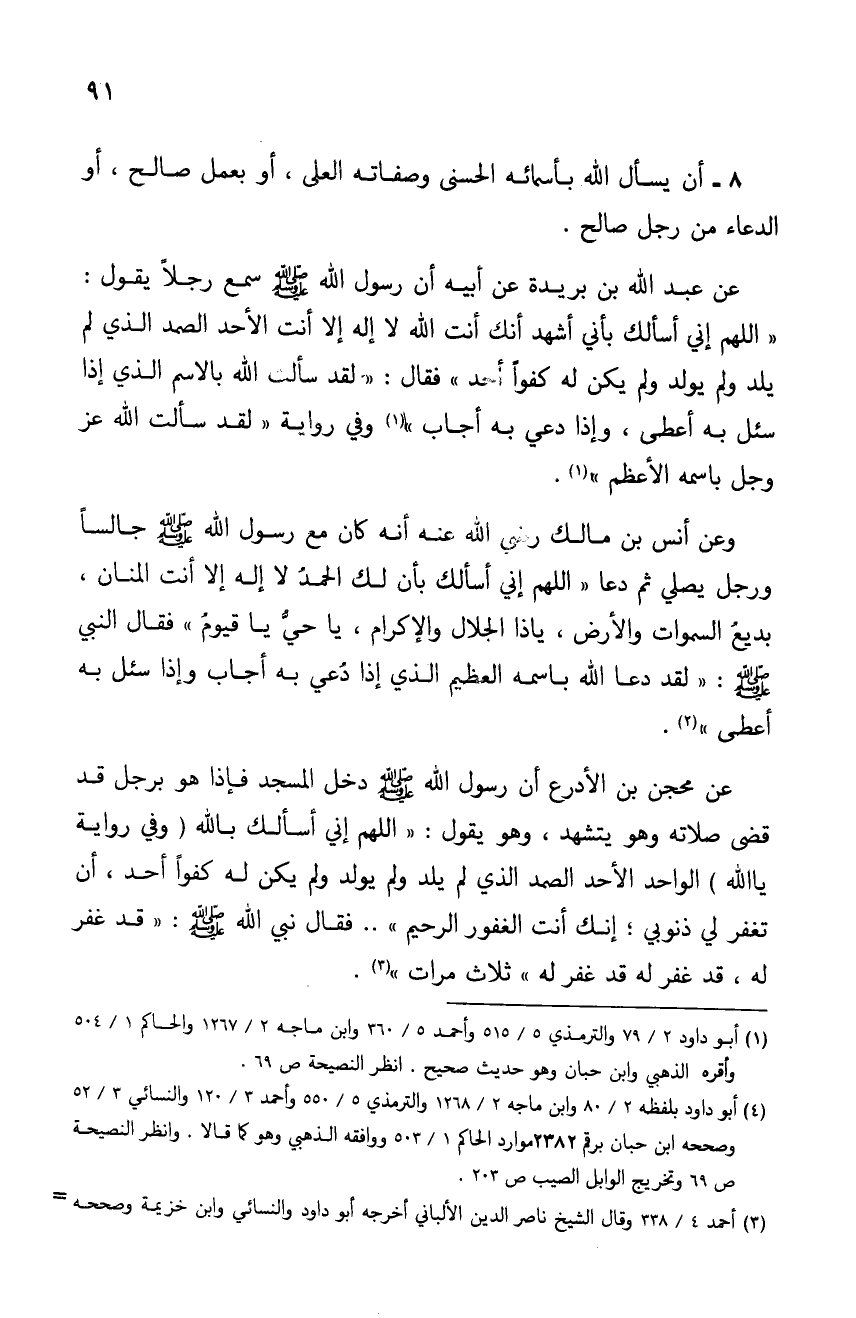 ٩١
٨ ـ أن يسأل الله بأسمائه الحسنى وصفاته العلى ، أو بعمل صالح ، أو
الدعاء من رجل صالح .
عن عبد الله بن بريدة عن أبيه أن رسول الله ﷺ سمع رجلاً يقول :
« اللهم إني أسألك بأني أشهد أنك أنت الله لا إله إلا أنت الأحد الصمد الذي لم
يلد ولم يولد ولم يكن له كفواً أحد » فقال : « لقد سألت الله بالاسم الذي إذا
سئل به أعطى ، وإذا دعي به أجاب »(١) وفي رواية « لقد سألت الله عز
وجل باسمه الأعظم »(١) .
وعن أنس بن مالك رضي الله عنه أنه كان مع رسول الله ﷺ جالساً
ورجل يصلي ثم دعا « اللهم إني أسألك بأن لك الحمدُ لا إله إلا أنت المنان ،
بديعُ السموات والأرض ، ياذا الجلال والإكرام ، يا حيُّ يا قيومُ » فقال النبي
ﷺ : « لقد دعا الله باسمه العظيم الذي إذا دُعي به أجاب وإذا سئل به
أعطى »(٢) .
عن محجن بن الأدرع أن رسول الله ﷺ دخل المسجد فإذا هو برجل قد
قضى صلاته وهو يتشهد ، وهو يقول : « اللهم إني أسألك بالله ( وفي رواية
ياالله ) الواحد الأحد الصمد الذي لم يلد ولم يولد ولم يكن له كفواً أحد ، أن
تغفر لي ذنوبي ؛ إنك أنت الغفور الرحيم » .. فقال نبي الله ﷺ : « قد غفر
له ، قد غفر له قد غفر له » ثلاث مرات »(٣) .
(١) أبو داود ٢ / ٧٩ والترمذي ٥ / ٥١٥ وأحمد ٥ / ٣٦٠ وابن ماجه ٢ / ١٢٦٧ والحاكم ١ / ٥٠٤
وأقره الذهبي وابن حبان وهو حديث صحيح . انظر النصيحة ص ٦٩ .
(٤) أبو داود بلفظه ٢ / ٨٠ وابن ماجه ٢ / ١٢٦٨ والترمذي ٥ / ٥٥٠ وأحمد ٣ / ١٢٠ والنسائي ٣ / ٥٢
وصححه ابن حبان برقم ٢٣٨٢موارد الحاكم ١ / ٥٠٣ ووافقه الذهبي وهو كما قالا . وانظر النصيحة
ص ٦٩ وتخريج الوابل الصيب ص ٢٠٣ .
(٣) أحمد ٤ / ٣٣٨ وقال الشيخ ناصر الدين الألباني أخرجه أبو داود والنسائي وابن خزيمة وصححه =